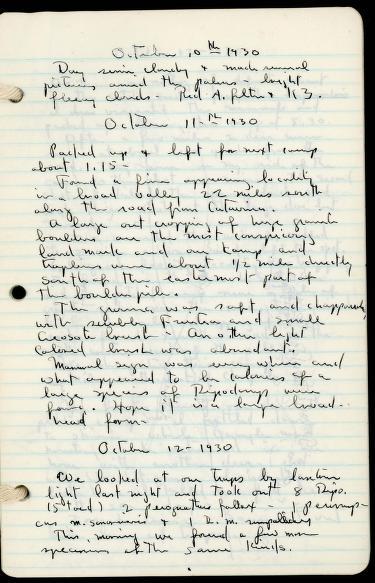 October 10th 1930
Day semi cloudy & made several
pictures amid the palms - bright
fleecy clouds. Red A. filter & K3.
October 11th 1930
Packed up & left for next camp
about 1.15 -
Found a fine appearing locality
in a broad valley 22 miles south
along the road from
A large out cropping of huge granite
boulders are the most conspicuous
land mark and our camp and
traplines were about 1/2 mile directly
south of the eastermost part of
the boulder pile.
The ground was soft and
with and small
Creosote brush. Another light
colored brush was abundant.
Mammal sign was every where and
what appeared to be colonies of a
large species of Dipodomys were
found. Hope it is a large broad-
head form.
October 12 - 1930
We looked at our traps by lantern
light last night and took out 8 Dipo.
(5 toed) 2 perognathus fallax - 1 peromys-
cus m. sonoriensis & 1 D. m.
This morning we found a few more
specimens of the same kinds.